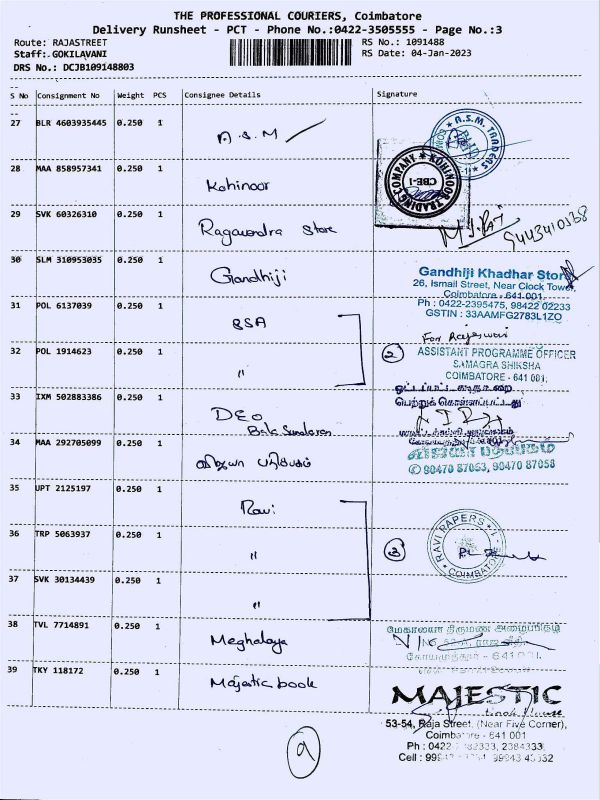 THE PROFESSIONAL COURIERS, Coimbatore
Delivery Runsheet - PCT - Phone No.:0422-3505555 - Page No.:3
Route: RAJASTREET
RS No.: 1091488
Staff: GOKILAVANI
RS Date: 04-Jan-2023
DRS No.: DCJB109148803
S No Consignment No Weight PCS Consignee Details Signature
27 BLR 4603935445 0.250 1 A.S.M
A.S.M. TRADERS
28 MAA 858957341 0.250 1 Kohinoor
KOHINOOR TRADING COMPANY
CBE-1
29 SVK 60326310 0.250 1 Ragavendra Store
9443410338
30 SLM 310953035 0.250 1 Gandhiji
Gandhiji Khadhar Store
26, Ismail Street, Near Clock Tower,
Coimbatore - 641 001.
Ph : 0422-2395475, 98422 02233
GSTIN : 33AAMFG2783L1ZO
31 POL 6137039 0.250 1 BSA
For Rajeswari
32 POL 1914623 0.250 1 "
2
ASSISTANT PROGRAMME OFFICER
SAMAGRA SHIKSHA
COIMBATORE - 641 001.
33 IXM 502883386 0.250 1 DEO
பெற்றுக் கொள்ளப்பட்டது
34 MAA 292705099 0.250 1 விஜயா பதிப்பகம்
விஜயா பதிப்பகம்
90470 87053, 90470 87058
35 UPT 2125197 0.250 1 Ravi
36 TRP 5063937 0.250 1 "
3
RAVI PAPERS
COIMBATORE
37 SVK 30134439 0.250 1 "
38 TVL 7714891 0.250 1 Meghalaya
மேகாலயா திருமண அழைப்பிதழ்
கோயமுத்தூர் - 641 001.
39 TKY 118172 0.250 1 Majestic book
MAJESTIC
Book House
53-54, Raja Street, (Near Five Corner),
Coimbatore - 641 001
Ph : 0422 2384333
Cell :
9